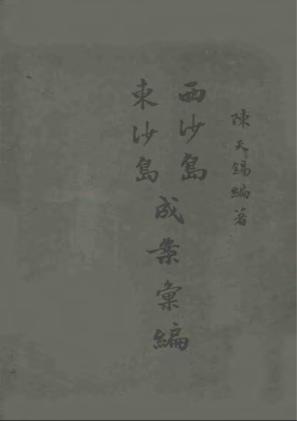 陳天錫編著
西沙島
東沙島
成案彙編